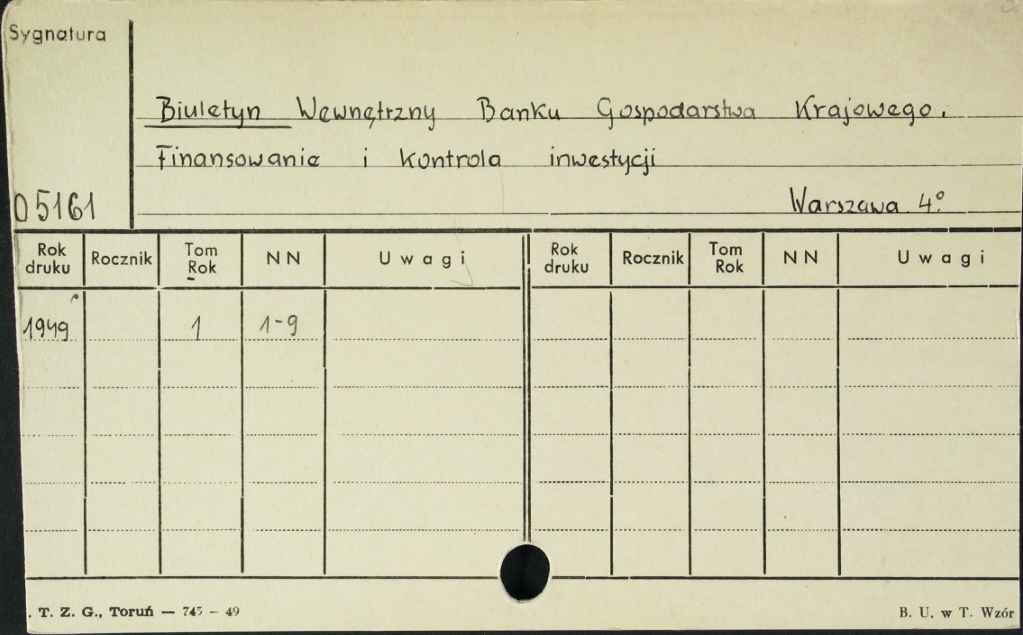 Sygnatura
Biuletyn Wewnętrzny Banku Gospodarstwa Krajowego.
Finansowanie i kontrola inwestycji
05161
Warszawa 4º
Rok druku Rocznik Tom Rok NN Uwagi Rok druku Rocznik Tom Rok NN Uwagi
1949 1 1-9
. T. Z. G., Toruń — 745 – 49 B. U. w T. Wzór